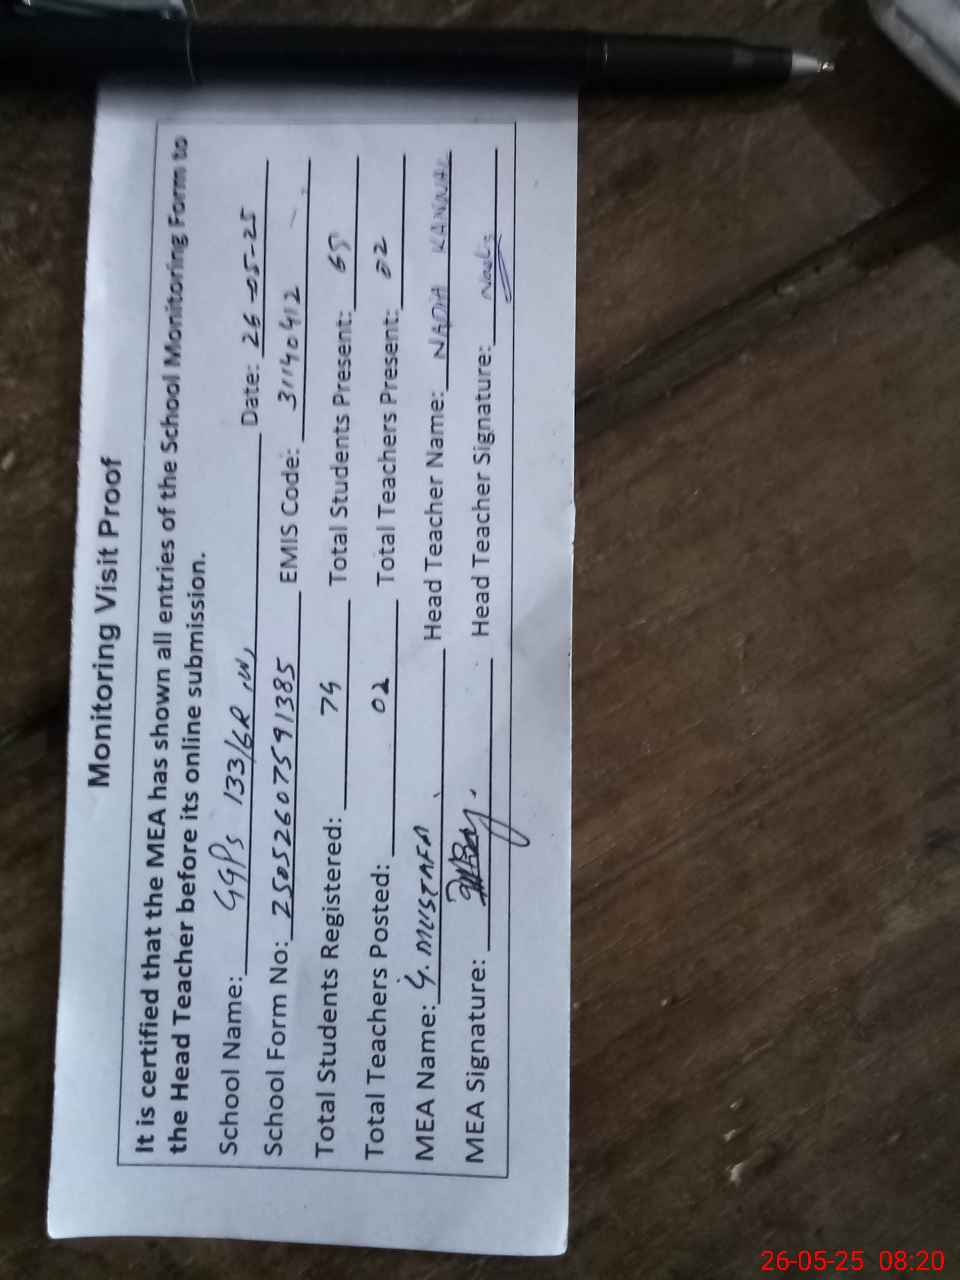 Monitoring Visit Proof
It is certified that the MEA has shown all entries of the School Monitoring Form to
the Head Teacher before its online submission.
School Name: GGPS 133/GR Date: 26-05-25
School Form No: 25052607591385 EMIS Code: 31140412
Total Students Registered: Total Students Present:
Total Teachers Posted: 02 Total Teachers Present: 02
MEA Name: G. MUSTAFA Head Teacher Name: NADIA KANWAL
MEA Signature: Head Teacher Signature:
26-05-25 08:20